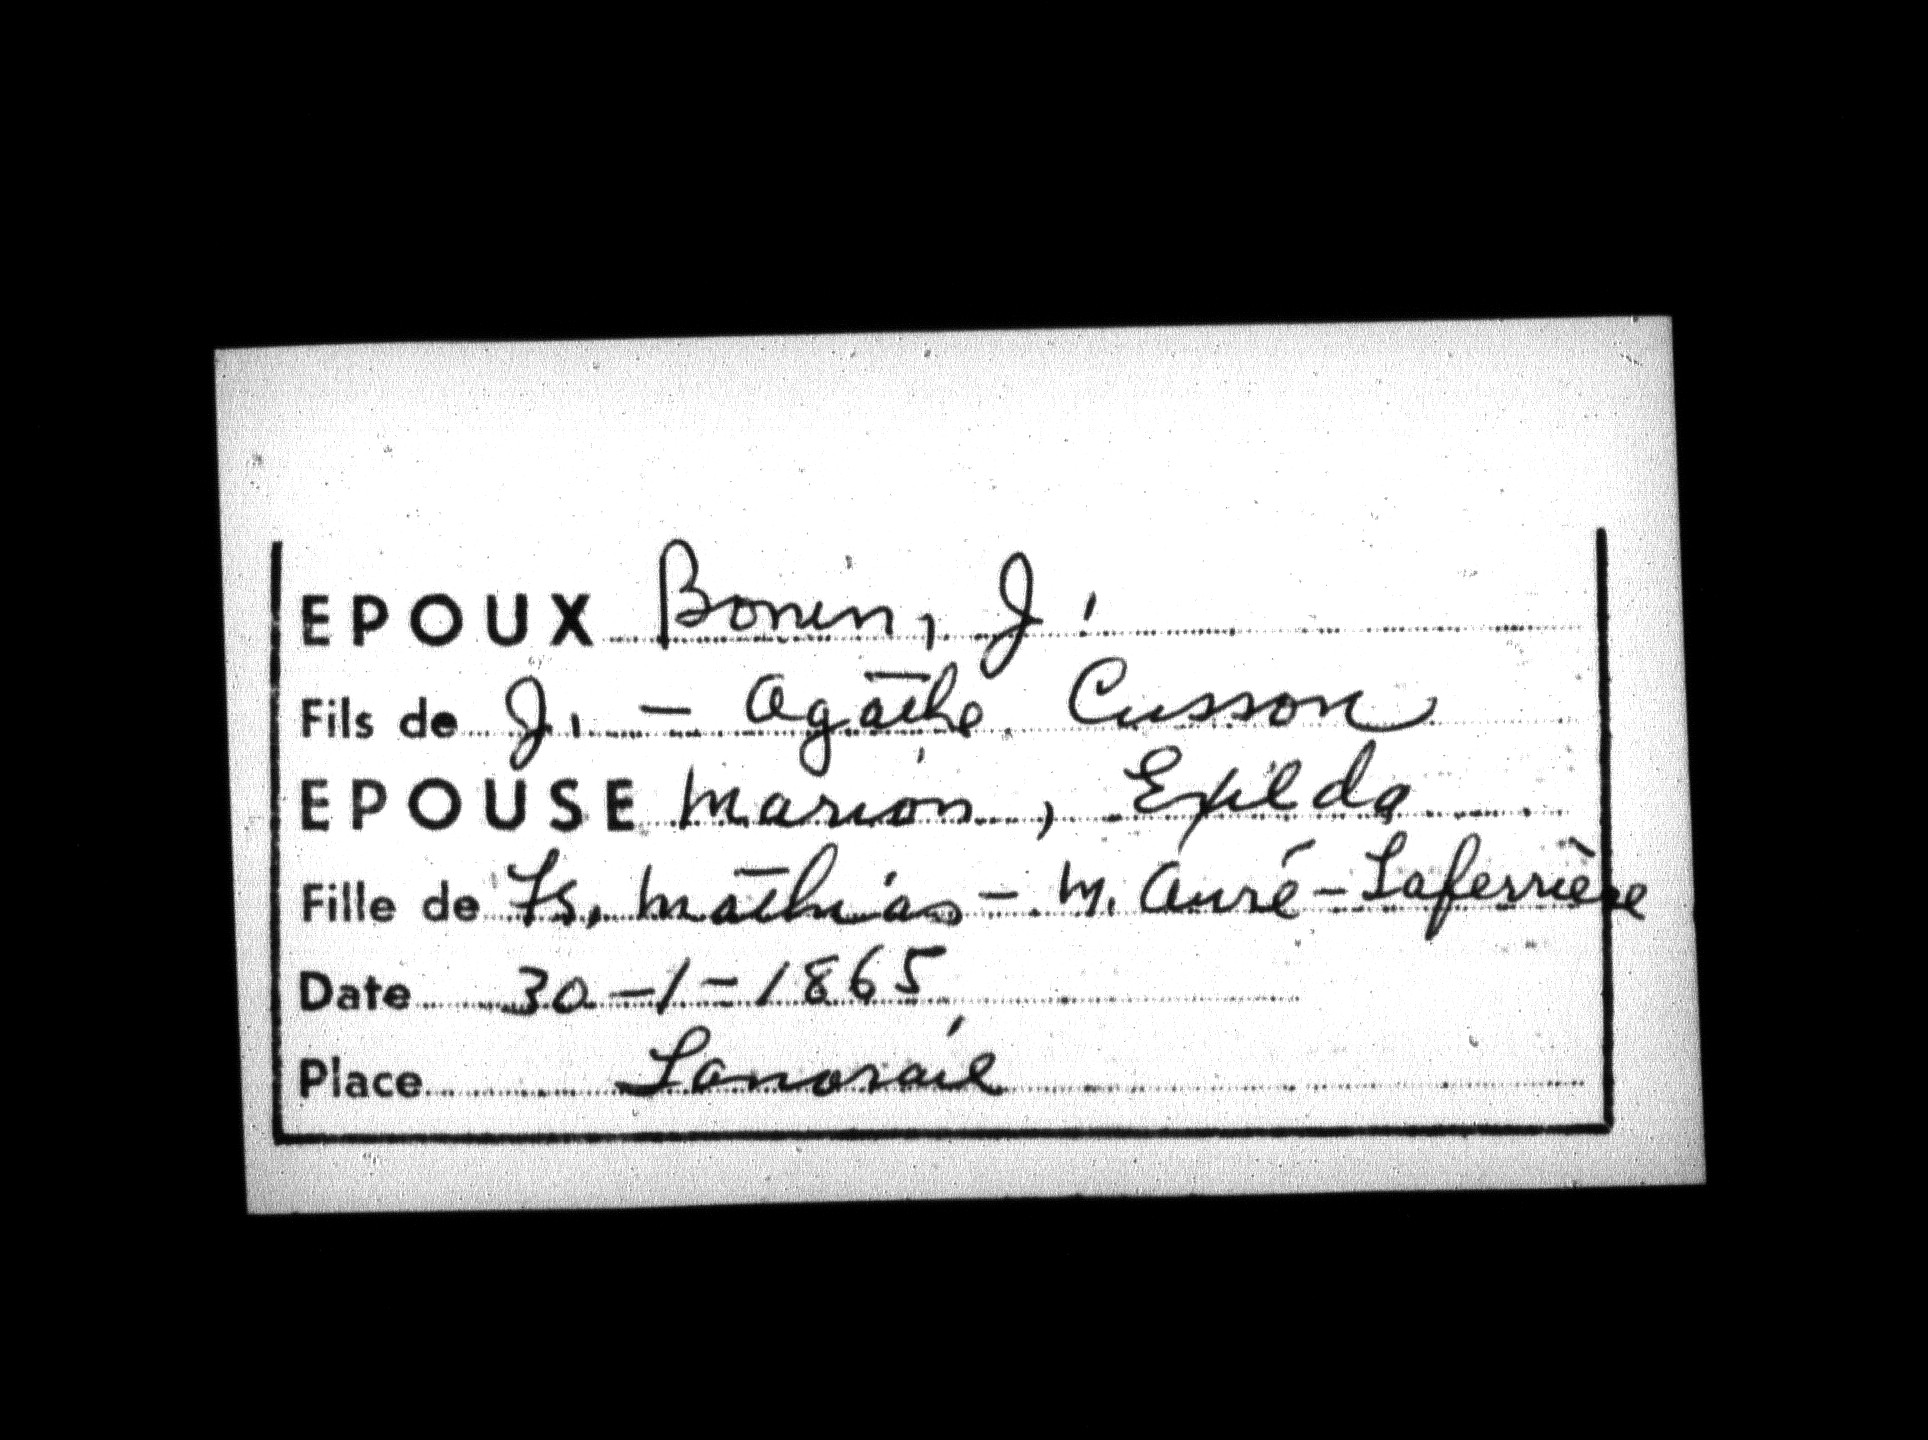 EPOUX Bonin, J.
Fils de J. - Agathe Cusson
EPOUSE Marion, Exilda
Fille de Fs. Mathias - M. Auré-Laferrière
Date 30-1-1865
Place Lanoraie